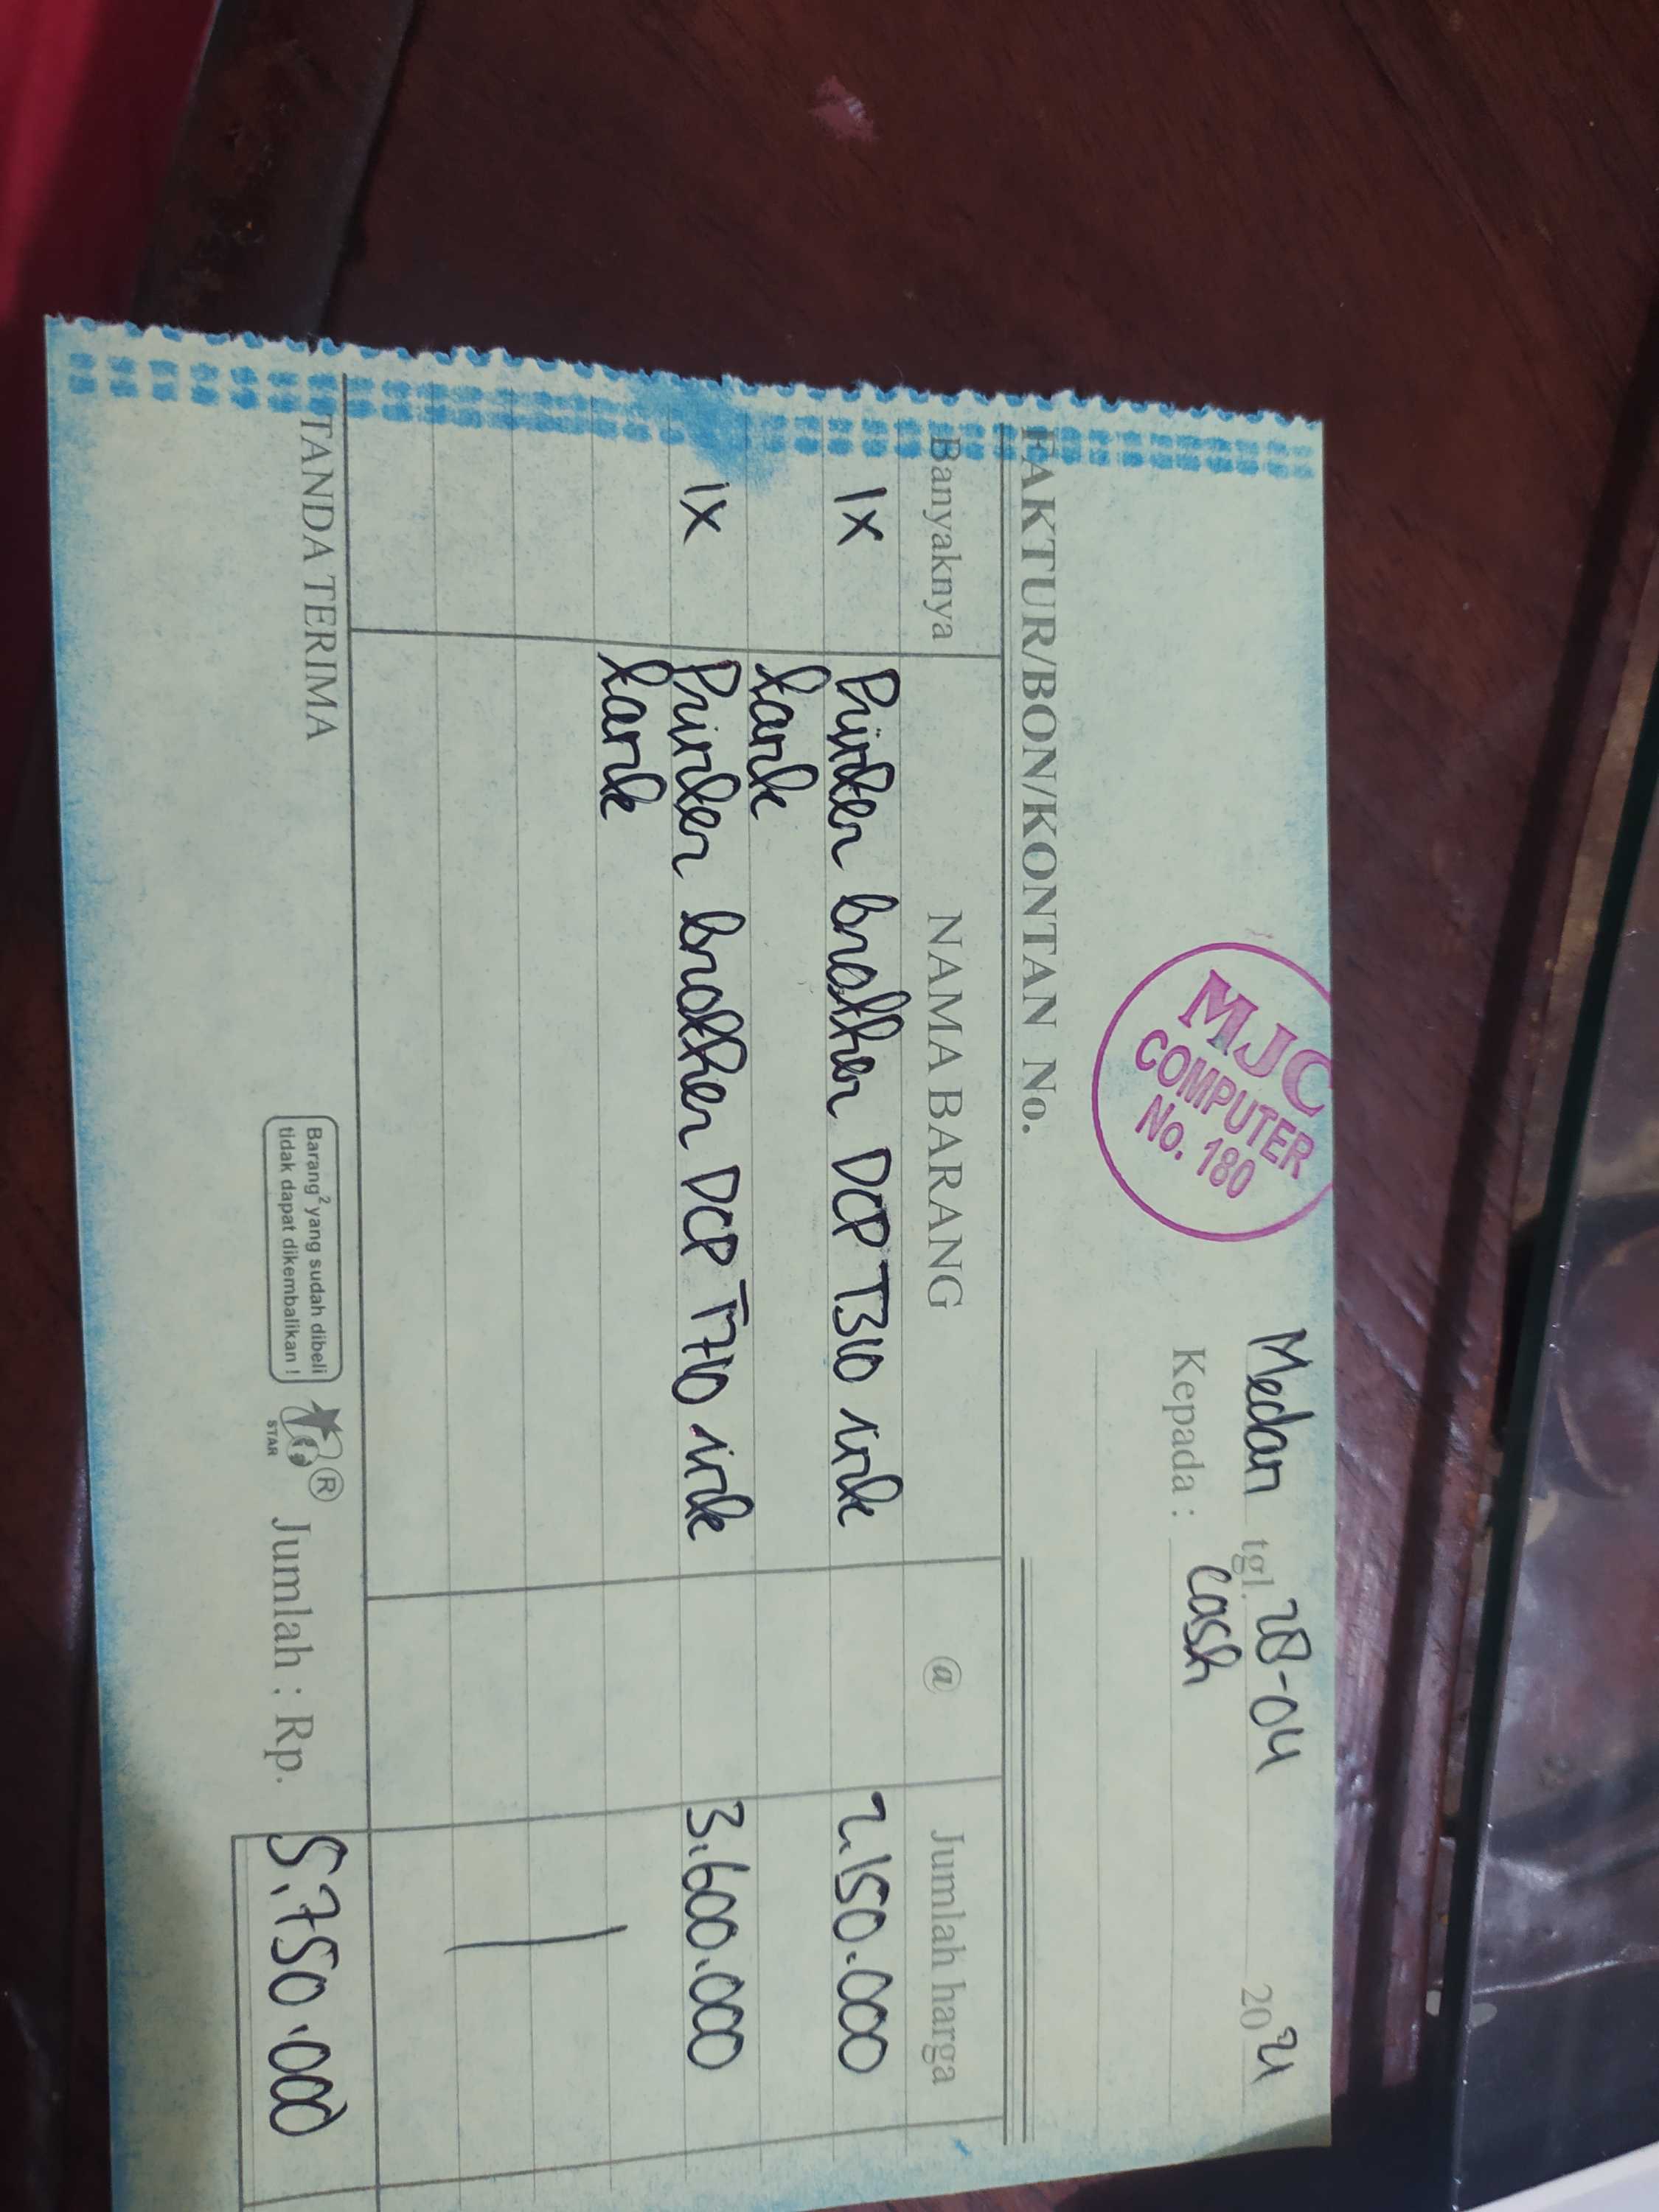 MJC
COMPUTER
No. 180
Medan tgl. 28-04 2021
Kepada : cash
FAKTUR/BON/KONTAN No.
Banyaknya NAMA BARANG @ Jumlah harga
1x Printer brother DCP T310 ink 2.150.000
tank
1x Printer brother DCP T710 ink 3.600.000
tank
TANDA TERIMA
Barang²yang sudah dibeli
tidak dapat dikembalikan !
STAR
®
Jumlah : Rp. 5.750.000